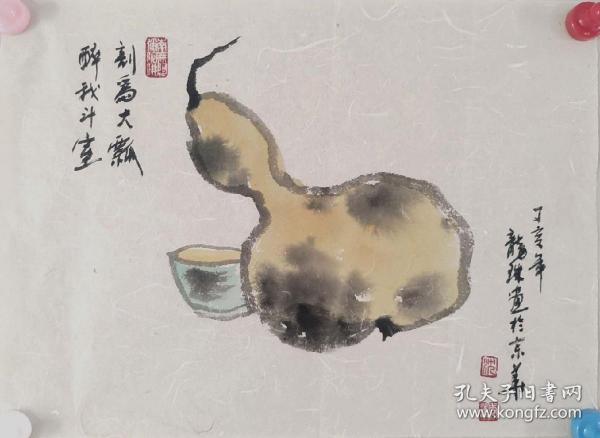 剖為大瓢
醉我斗室
丁亥年
龍珠畫於京華
孔夫子旧书网
www.kongfz.com